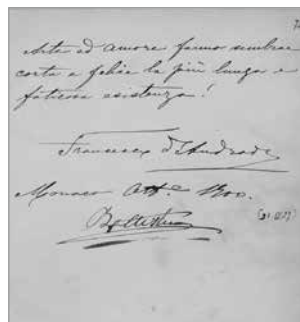 Arte ed amore fanno sembrar
corta e felice la più lunga e
faticosa esistenza!
Francesco d'Andrade
Monaco